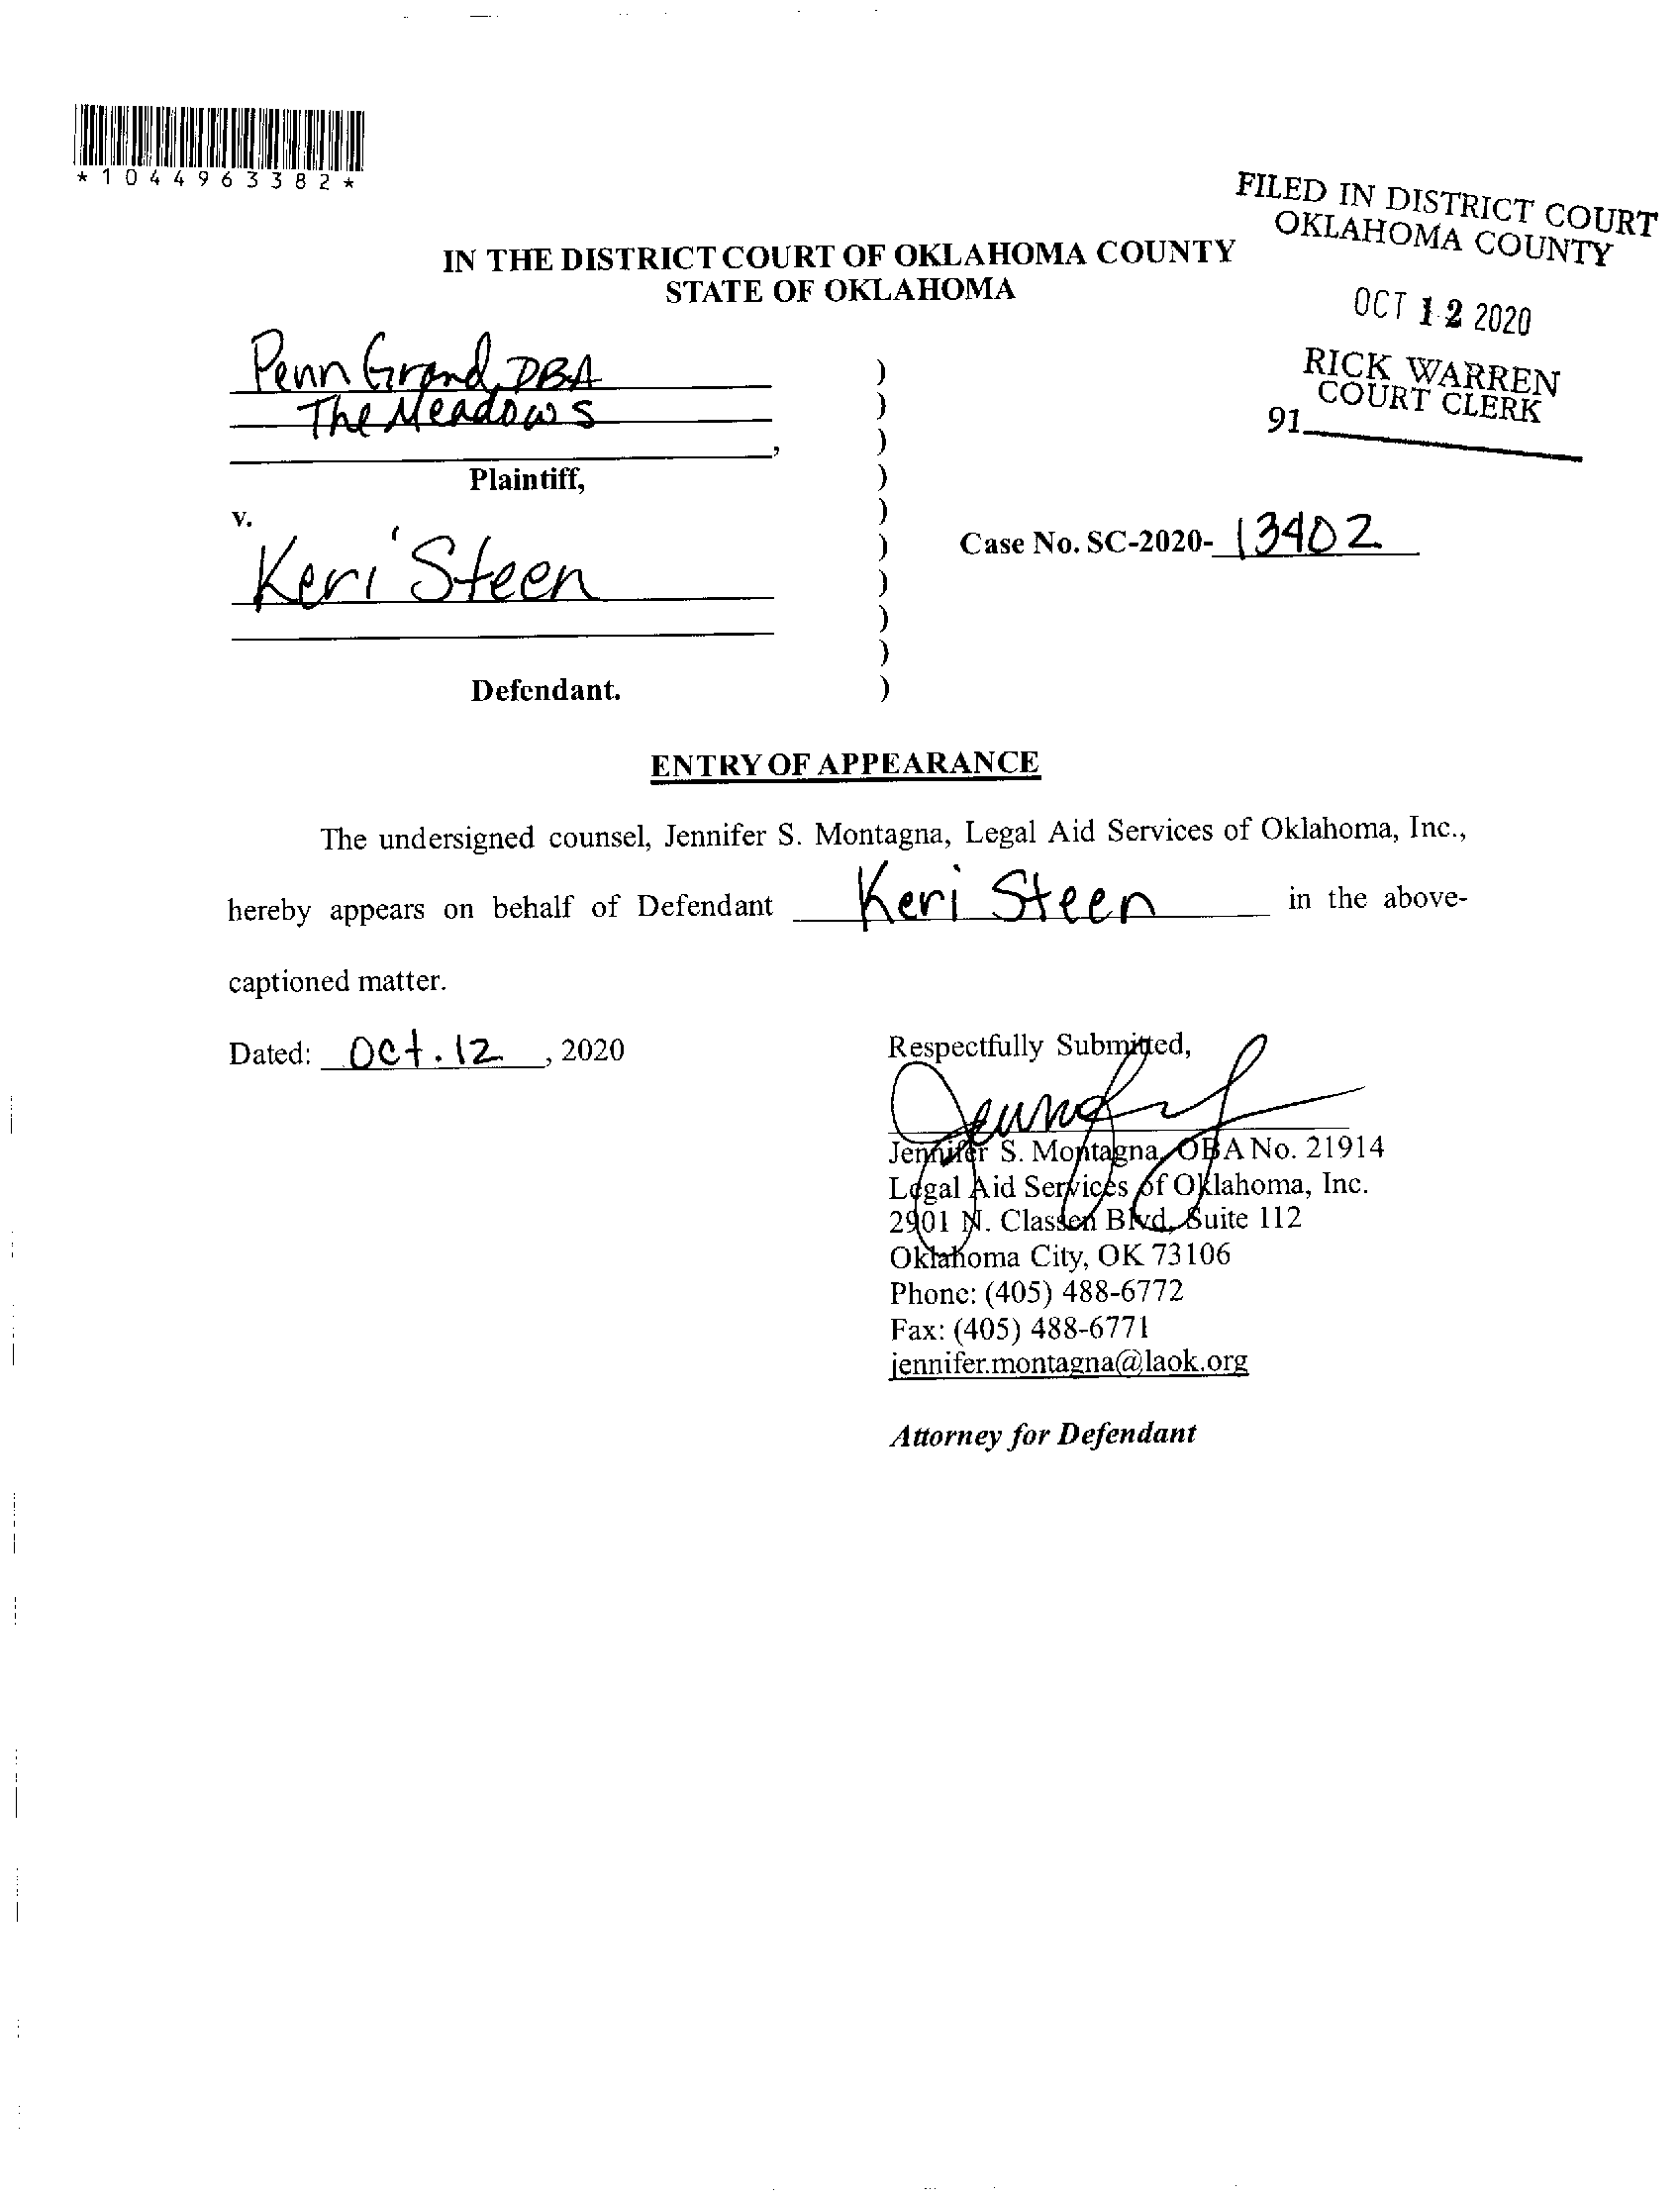 *1044963382*
FILED IN DISTRICT COURT
OKLAHOMA COUNTY
OCT 12 2020
RICK WARREN
COURT CLERK
91
IN THE DISTRICT COURT OF OKLAHOMA COUNTY
STATE OF OKLAHOMA
Penn Grand DBA )
The Meadows )
, )
Plaintiff, )
v. )
Case No. SC-2020- 13402
Keri Steen )
)
)
)
Defendant. )
ENTRY OF APPEARANCE
The undersigned counsel, Jennifer S. Montagna, Legal Aid Services of Oklahoma, Inc.,
hereby appears on behalf of Defendant Keri Steen in the above-
captioned matter.
Dated: Oct. 12, 2020
Respectfully Submitted,
Jennifer S. Montagna, OBA No. 21914
Legal Aid Services of Oklahoma, Inc.
2901 N. Classen Blvd, Suite 112
Oklahoma City, OK 73106
Phone: (405) 488-6772
Fax: (405) 488-6771
jennifer.montagna@laok.org
Attorney for Defendant